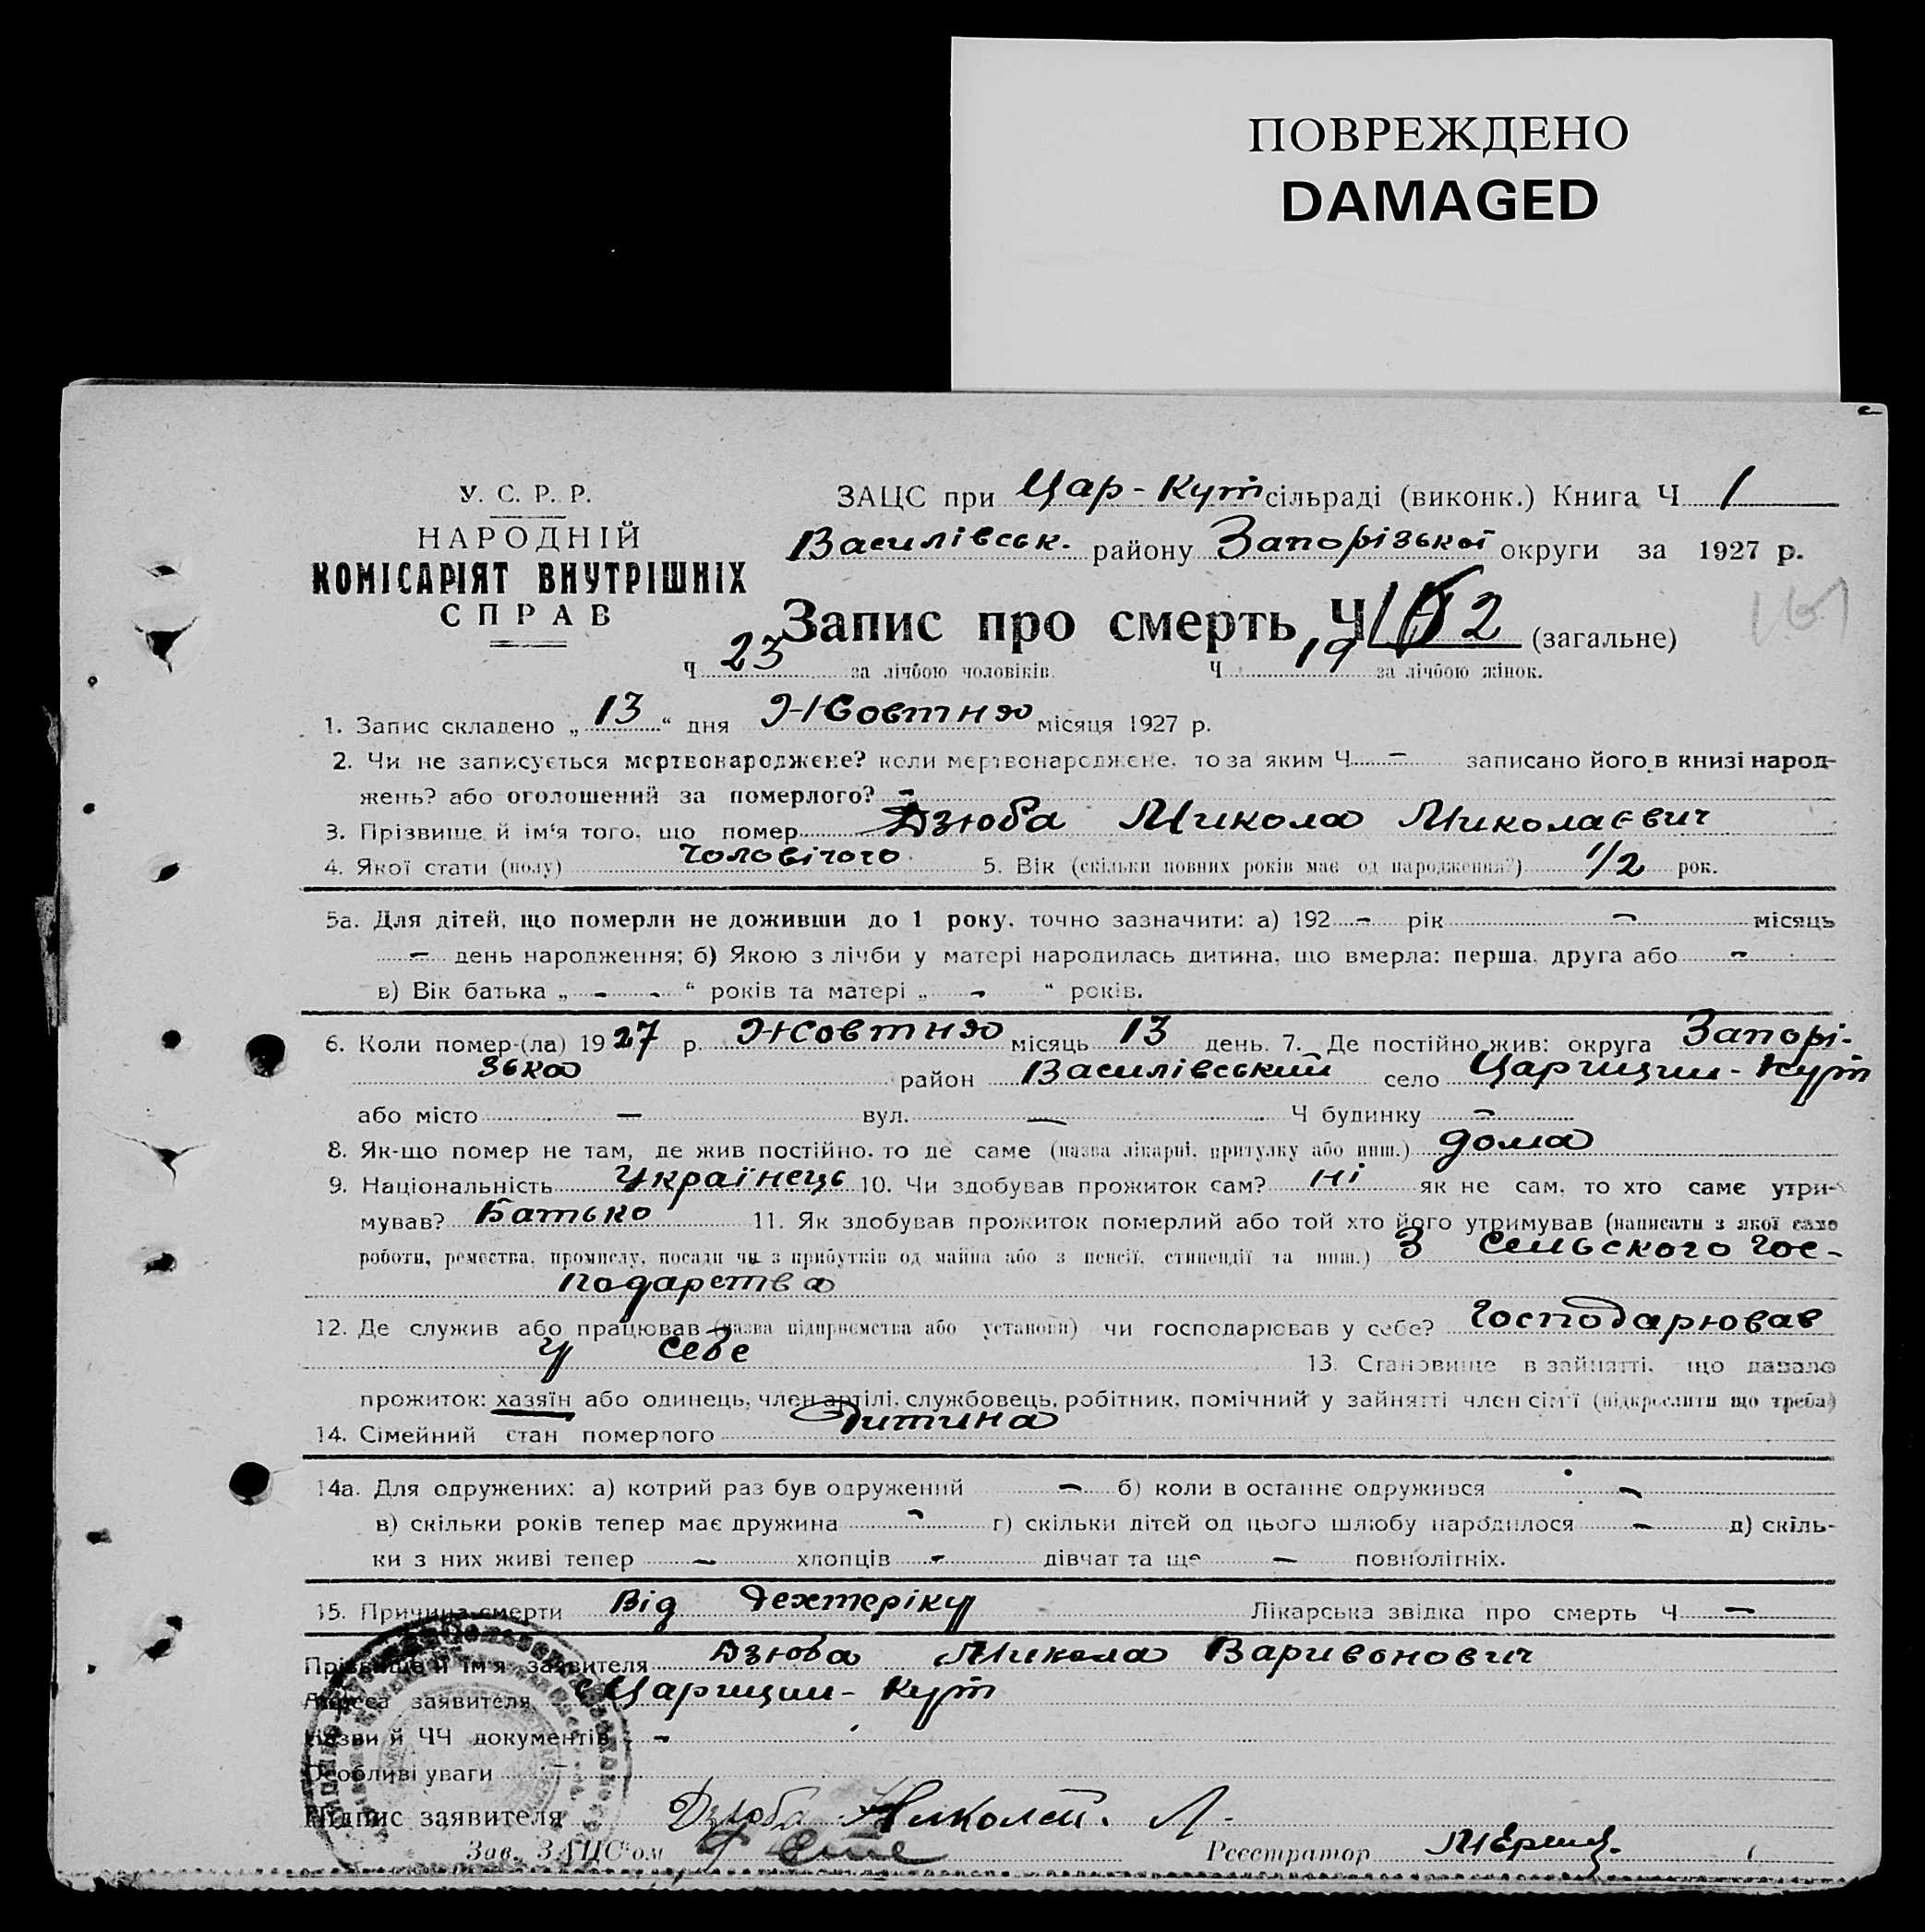 ПОВРЕЖДЕНО
DAMAGED
У. С. Р. Р.
НАРОДНІЙ
КОМІСАРІЯТ ВНУТРІШНІХ
СПРАВ
ЗАЦС при Цар-Кут сільраді (виконк.) Книга Ч 1
Василівськ. району Запорізької округи за 1927 р.
Запис про смерть Ч 2 (загальне)
Ч 23 за лічбою чоловіків. Ч 19 за лічбою жінок.
1. Запис складено „ 13 “ дня Жовтня місяця 1927 р.
2. Чи не записується мертвонароджене? коли мертвонароджене, то за яким Ч – записано його в книзі народ-
жень? або оголошений за померлого? –
3. Прізвище й ім‘я того, що помер Дзюба Микола Миколаєвич
4. Якої стати (полу) Чоловічого 5. Вік (скільки повних років має од народження?) 1/2 рок.
5а. Для дітей, що померли не доживши до 1 року, точно зазначити: а) 192 – рік – місяць
– день народження; б) Якою з лічби у матері народилась дитина, що вмерла: перша, друга або –
в) Вік батька „ – “ років та матері „ – “ років.
6. Коли помер-(ла) 1927 р. Жовтня місяць 13 день. 7. Де постійно жив: округа Запорі-
зька район Василівський село Царицин-Кут
або місто – вул. – Ч будинку –
8. Як-що помер не там, де жив постійно, то де саме (назва лікарні, притулку або инш.) дома
9. Національність Українець 10. Чи здобував прожиток сам? ні як не сам, то хто саме утри-
мував? Батько 11. Як здобував прожиток померлий або той хто його утримував (написати з якої саме
роботи, ремества, промислу, посади чи з прибутків од майна або з пенсії, стипендії та инш.) З сельського гос-
подарства
12. Де служив або працював (назва підприємства або установи) чи господарював у себе? Господарював
у себе 13. Становище в зайнятті, що давало
прожиток: хазяїн або одинець, член артілі, службовець, робітник, помічний у зайнятті член сім‘ї (підкреслити що треба)
14. Сімейний стан померлого Дитина
14а. Для одружених: а) котрий раз був одружений – б) коли в останнє одружився –
в) скільки років тепер має дружина – г) скільки дітей од цього шлюбу народилося – д) скіль-
ки з них живі тепер – хлопців – дівчат та ще – повнолітніх.
15. Причина смерти Від дехтеріку Лікарська звідка про смерть Ч –
Прізвище й ім‘я заявителя Дзюба Микола Варивонович
Адреса заявителя с Царицин-Кут
Назви й ЧЧ документів –
Особливі уваги –
Підпис заявителя Дзюба Николай. Л.
Зав. ЗАЦС‘ом
Реєстратор